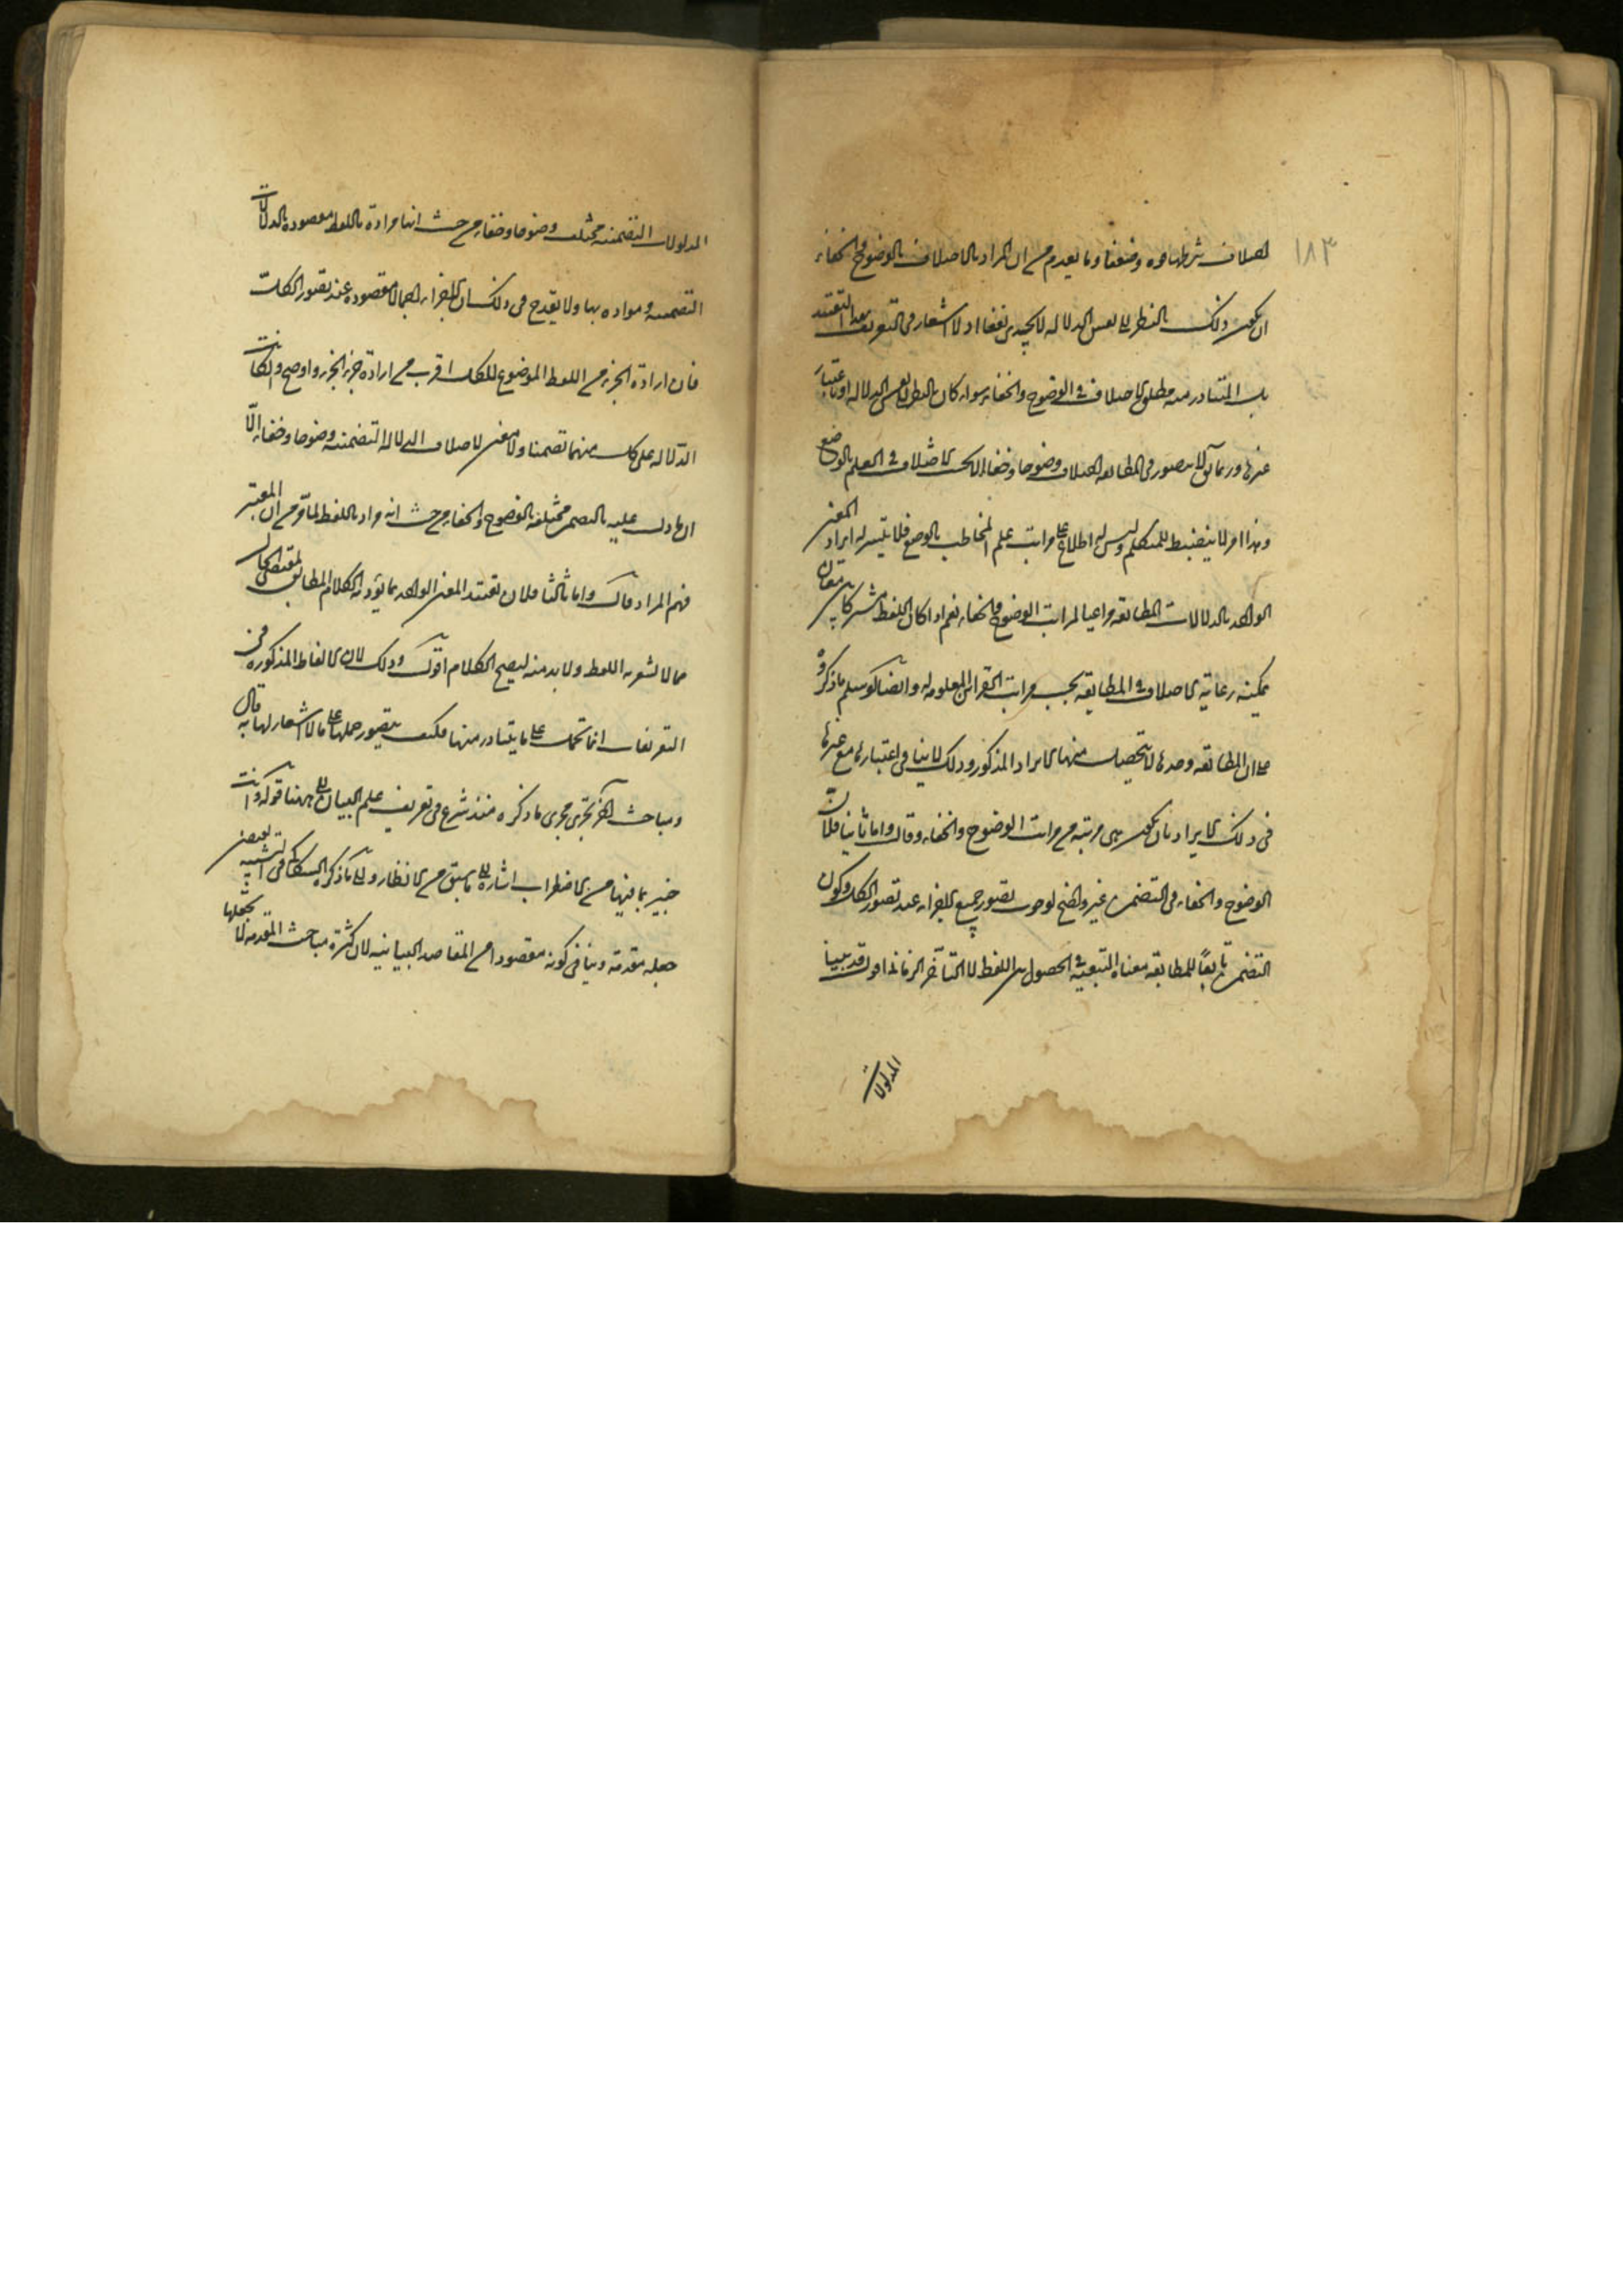 ١٨٣
اختلاف شرطها قوة وضعفا وما تقدم من ان المراد بالاختلاف بالوضوح والخفاء
ان يكون ذلك بالنظر الى نفس الدلالة لا يجدى نفعا اذ لا اشعار فى التعريف بهذا التقييد
بل المتبادر منه مطلق الاختلاف فى الوضوح والخفاء سواء كان بالنظر الى نفس الدلالة او باعتبار
غيرها وربما لا يتصور فى المطابقة اختلاف وضوحا وخفاء الا بحسب الاختلاف فى العلم بالوضع
وهذا امر لا ينضبط للمتكلم وليس له اطلاع على مراتب علم المخاطب بالوضع فلا يتيسر له ايراد المعنى
الواحد بالدلالات المطابقة مراعيا لمراتب الوضوح والخفاء نعم اذا كان اللفظ مشتركا بين معان
يمكنه رعاية الاختلاف فى المطابقة بحسب مراتب القرائن المعلومة له وايضا لو سلم ما ذكروه
على ان المطابقة وحدها لا يتحصل منها الايراد المذكور وذلك لا ينافى اعتبارها مع غيرها
فى ذلك الايراد بان يكون هى مرتبة من مراتب الوضوح والخفاء وقال واما ثانيا فلان
الوضوح والخفاء فى التضمن غير واضح لوجوب تصور جميع الاجزاء عند تصور الكل وكون
التضمن تابعا للمطابقة معناه التبعية فى الحصول من اللفظ لا التأخر الزمانى اقول قد بينا
المدلولات
المدلولات التضمنية مختلف وضوحا وخفاء من حيث انها مرادة باللفظ مقصودة بالدلالات
التضمنية ومرادة بها ولا يقدح فى ذلك ان الاجزاء اجمالا مقصودة عند تصور الكل
فان ارادة الجزء من اللفظ الموضوع للكل اقرب من ارادة جزء الجزء واوضح وان كانت
الدلالة على كل منهما تضمنا ولا معنى لاختلاف الدلالة التضمنية وضوحا وخفاء الا
ان ما دل عليه بالتضمن مختلفة بالوضوح والخفاء من حيث انه مراد باللفظ لما مر من ان المعتبر
فهم المراد قال واما ثالثا فلان تقييد المعنى الواحد بما يؤديه الكلام المطابق لمقتضى الحال
مما لا يشعر به اللفظ ولا بد منه ليصح الكلام اقول وذلك لان الالفاظ المذكورة فى
التعريفات انما تحمل على ما يتبادر منها فكيف يتصور حملها على ما لا اشعار لها به قال
ومباحث اخر تجرى مجرى ما ذكره منذ شرع فى تعريف علم البيان الى ههنا قوله وانت
خبير بما فيها من الاضطراب اشارة الى ما سبق من الانظار والى ما ذكره السكاكى فى التشبيه لبعض
جعله مقدمة وينافى كونه مقصودا من المقاصد البيانية لان كثرة مباحث المقدمة لا يجعلها